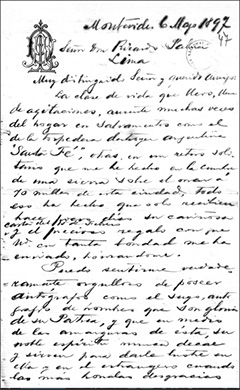 Montevideo 6 Mayo 1897
47
Señor Don Ricardo Palma
Lima
Muy distinguido Señor y querido amigo
La clase de vida que llevo, llena
de agitaciones, ausente muchas veces
del hogar en salvamentos como el
de la torpedera argentina
Santa Fé, otras, en un retiro soli-
tario que me he hecho en la cumbre
de una sierra sobre el mar a
70 millas de esta ciudad, todo
eso ha hecho que solo recibiera
hace pocos dias su cariñosa
carta
y el precioso regalo con que
Vd con tanta bondad me ha
enviado, honrandome.
Puedo sentirme verdade-
ramente orgulloso de poseer
autógrafos como el suyo, autó-
grafos de hombres que son gloria
de su Patria, y que en medio
de las amarguras de ésta, su
noble espiritu nunca decae
y sirven para darle lustre en
ella y en el extrangero cuando
las mas hondas desgracias